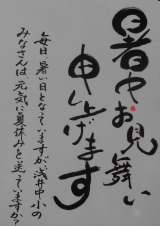 暑中お見舞い
申し上げます
毎日暑い日となっていますが浅井中小の
みなさんは元気に夏休みを送っていますか?